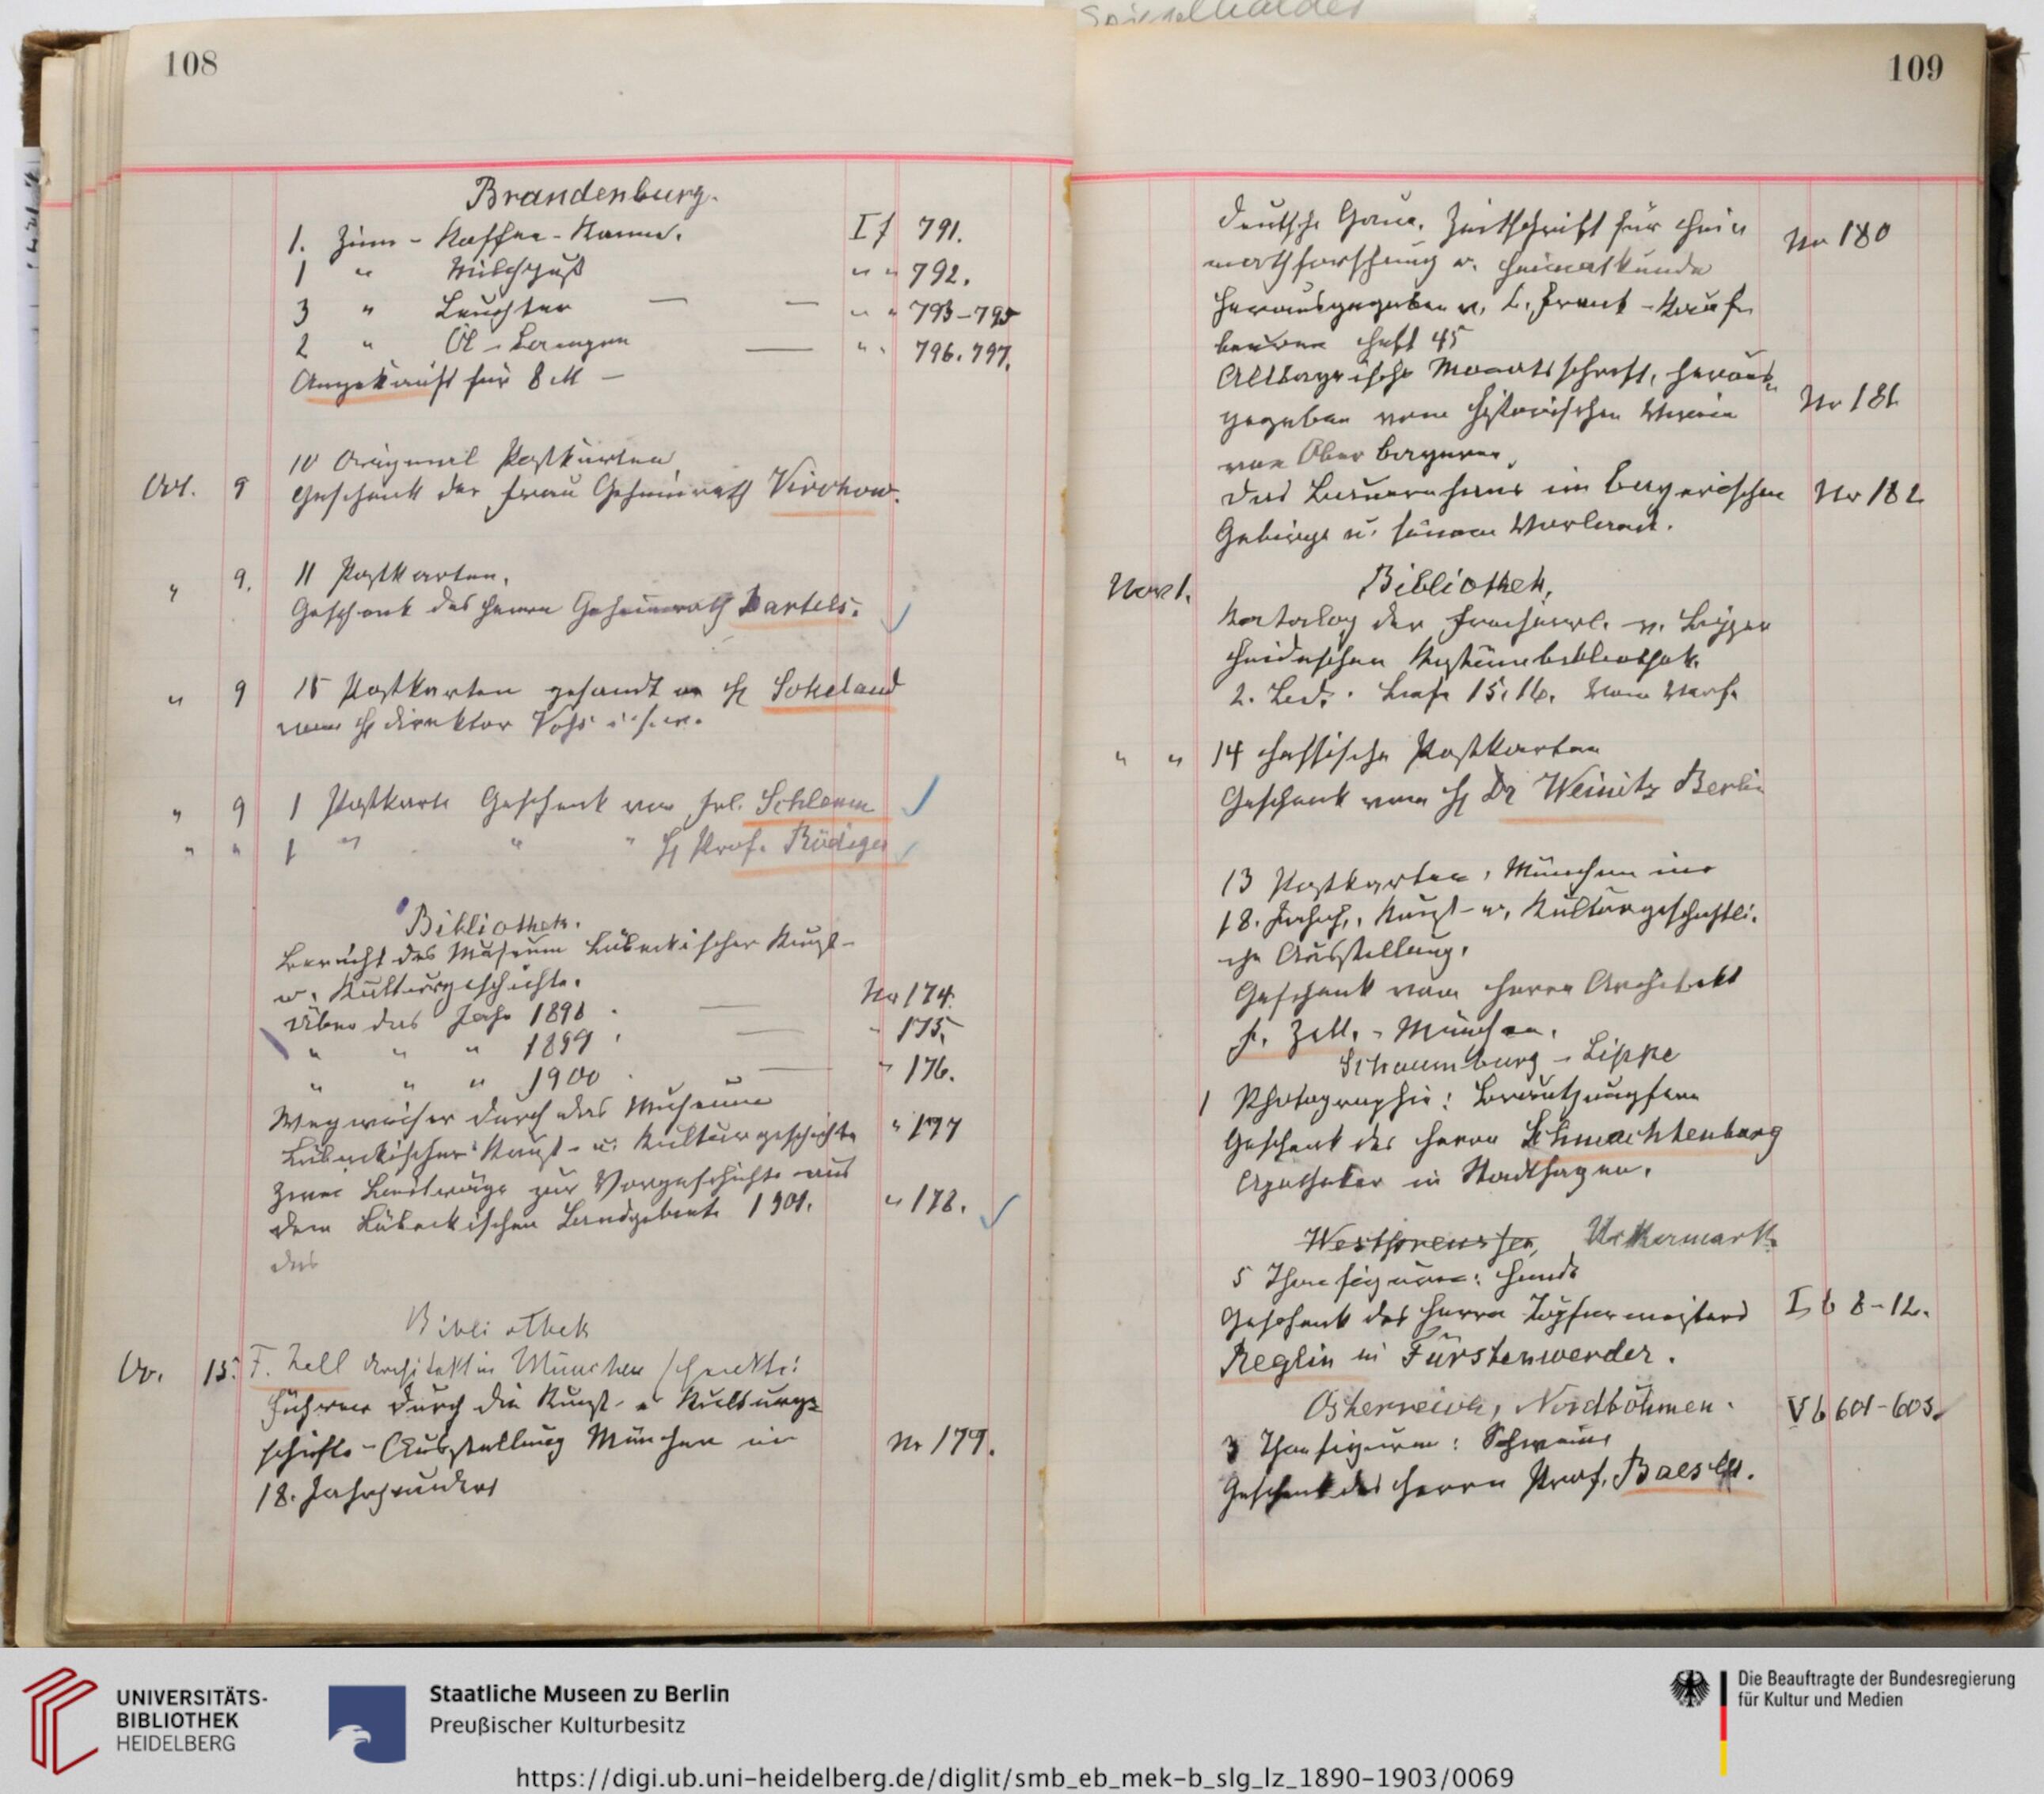 108
Brandenburg.
1. Zinn-Kaffee-Kanne. I f 791.
1 " Milchguß " " 792.
3 " Leuchter — — " " 793-795
2 " Öl-Lampen — " " 796.797.
Angekauft für 8 M —
10 Original Postkarten,
Oct. 9 Geschenk der Frau Geheimrath Virchow.
" 9. 11 Postkarten,
Geschenk des Herrn Geheimrath Bartels.
" 9 15 Postkarten gesandt an H Sökeland
vom H Direktor Voß u.s.w.
" 9 1 Postkarte Geschenk von Frl. Schlemm
" " 1 " " " H Prof. Rüdiger
Bibliothek.
Bericht des Museum Lübeckischer Kunst-
u. Kulturgeschichte.
über das Jahr 1898 . — No 174.
" " " 1899 . — " 175.
" " " 1900 . — " 176.
Wegweiser durch das Museum
Lübeckischer Kunst- u. Kulturgeschichte " 177
Zwei Beiträge zur Vorgeschichte aus
dem Lübeckischen Landgebiete 1901. " 178.
das
Bibliothek
15. F. Zell Architekt in München schenkte:
Führer durch die Kunst- u Kulturge
schichts-Ausstellung München im Nr 179.
18. Jahrhundert
109
Deutsche Gaue. Zeitschrift für Hei
mathforschung u. Heimatkunde Nr 180
herausgegeben v. C. Frank-Kauf
beuren Heft 45
Altbayrische Monatsschrift, heraus
gegeben vom historischen Verein Nr 181
von Ober bayern,
Das Bauernhaus im bayerischen Nr 182
Gebirge u. seinem Vorland.
Nov 1. Bibliothek,
Katalog der Freiherrl. v. Lipper
heideschen Kostümbibliothek.
2. Bd. 15.16. Vom Verf.
" " 14 hessische Postkarten
Geschenk vom H Dr Weinitz Berlin
13 Postkarten, München im
18. Jahrh., Kunst- u. Kulturgeschichtli.
che Ausstellung.
Geschenk vom Herrn Architekt
F. Zell. - München.
Schaumburg-Lippe
1 Photographie: Brautjungfern
Geschenk des Herrn Schmachtenberg
Apotheker in Stadthagen.
Westpreussen, Uckermark.
5 Thonfiguren: Hunde
Geschenk des Herrn Töpfermeisters I b 8-12.
Reglin in Fürstenwerder.
Österreich, Nordböhmen. V b 601-603.
3 Thonfiguren: Schweine
Geschenk des Herrn Prof. Baessler.
UNIVERSITÄTS-
BIBLIOTHEK
HEIDELBERG
Staatliche Museen zu Berlin
Preußischer Kulturbesitz
Die Beauftragte der Bundesregierung
für Kultur und Medien
https://digi.ub.uni-heidelberg.de/diglit/smb_eb_mek-b_slg_lz_1890-1903/0069